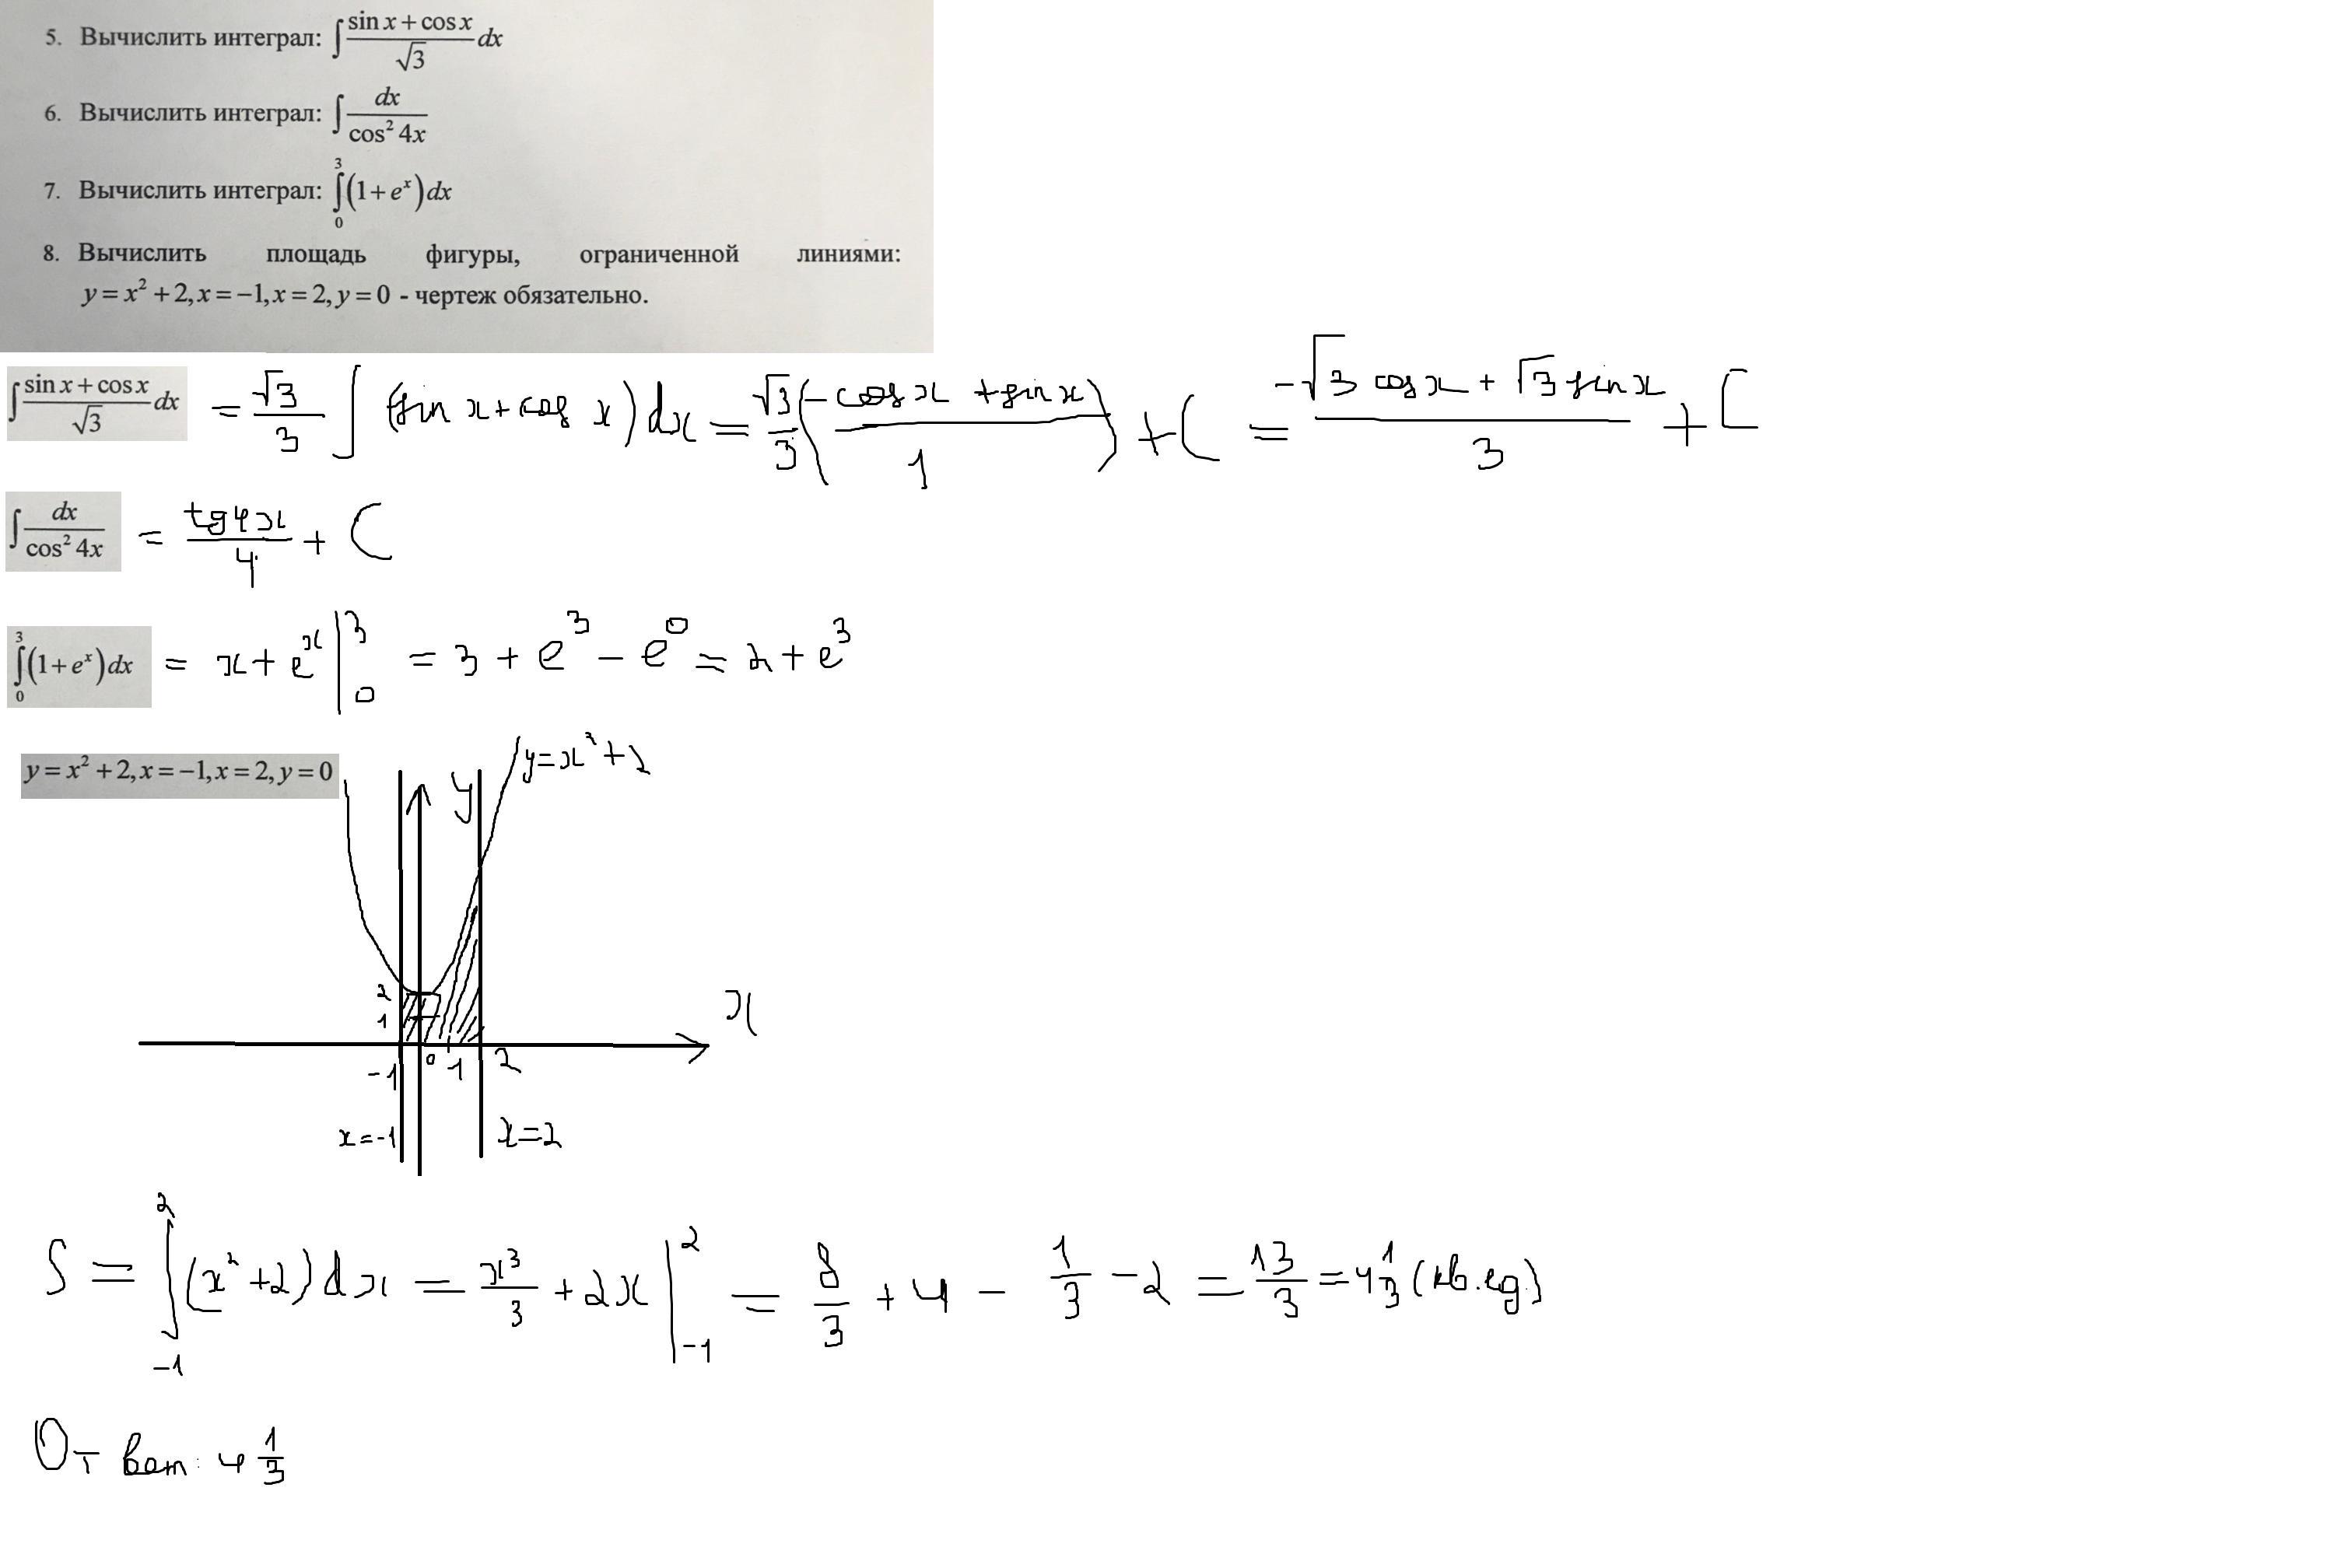 5. Вычислить интеграл: ∫ (sin x + cos x)/√3 dx
6. Вычислить интеграл: ∫ dx/cos² 4x
7. Вычислить интеграл: ∫₀³ (1 + eˣ) dx
8. Вычислить площадь фигуры, ограниченной линиями:
y = x² + 2, x = −1, x = 2, y = 0 - чертеж обязательно.
∫ (sin x + cos x)/√3 dx = √3/3 ∫ (sin x + cos x) dx = √3/3 ((−cos x + sin x)/1) + C = (−√3 cos x + √3 sin x)/3 + C
∫ dx/cos² 4x = tg 4x/4 + C
∫₀³ (1 + eˣ) dx = x + eˣ |₀³ = 3 + e³ − e⁰ = 2 + e³
y = x² + 2, x = −1, x = 2, y = 0
y = x² + 2
y
2
1
x
−1 0 1 2
x = −1 x = 2
S = ∫₋₁² (x² + 2) dx = x³/3 + 2x |₋₁² = 8/3 + 4 − 1/3 − 2 = 13/3 = 4 1/3 (кв. ед.)
Ответ: 4 1/3